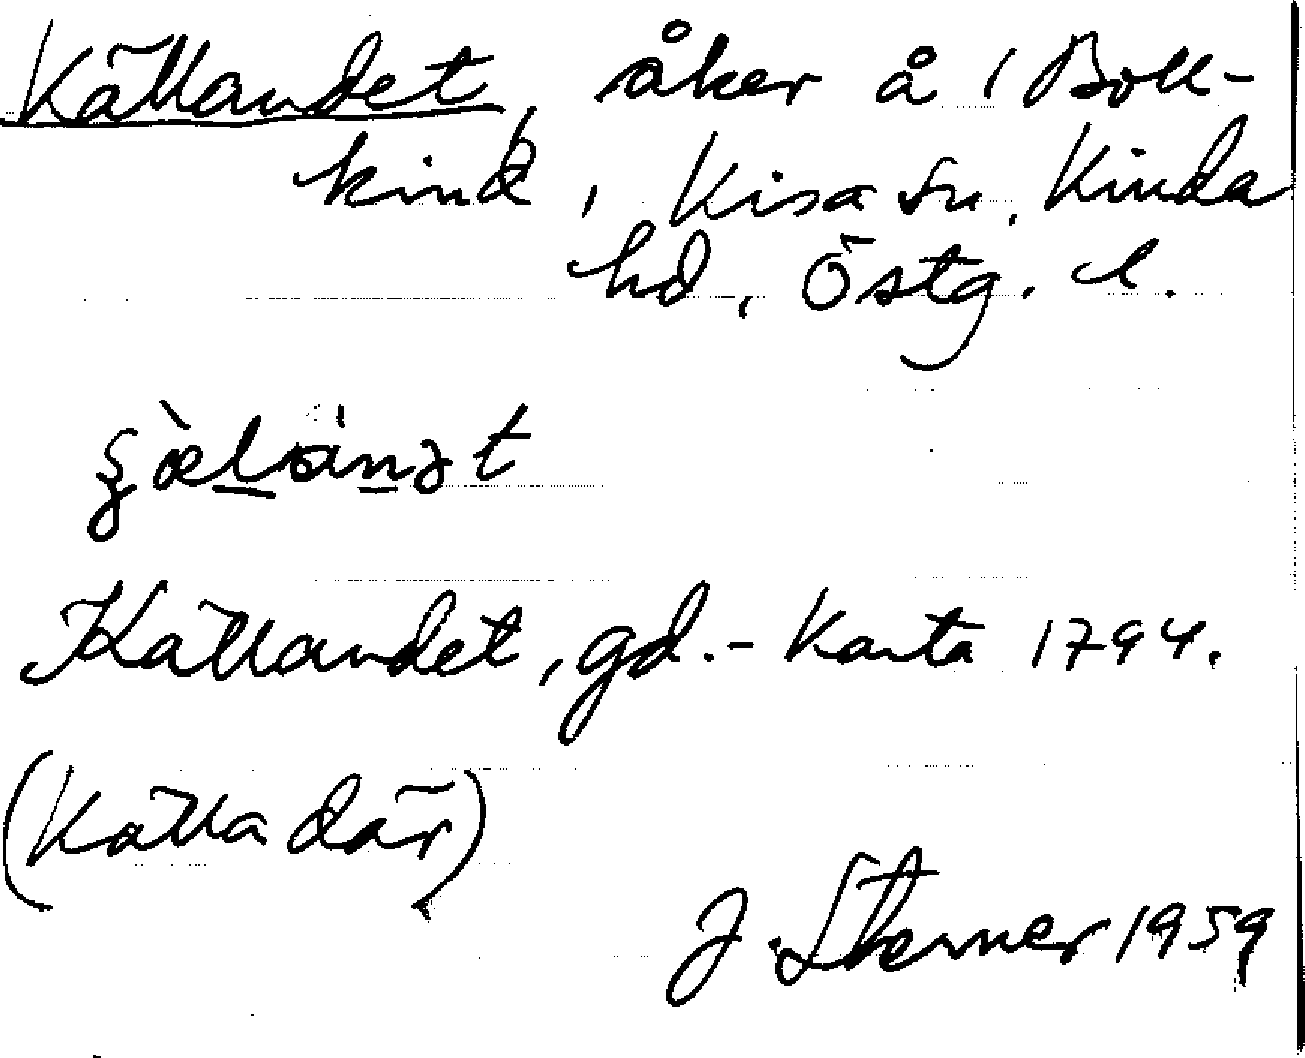 Källandet, åker å 1 Boll-
kind, Kisa sn, Kinda
hd, Östg. l.
Källandet, gd. - Karta 1794.
(Källa där)
J. Sterner 1959